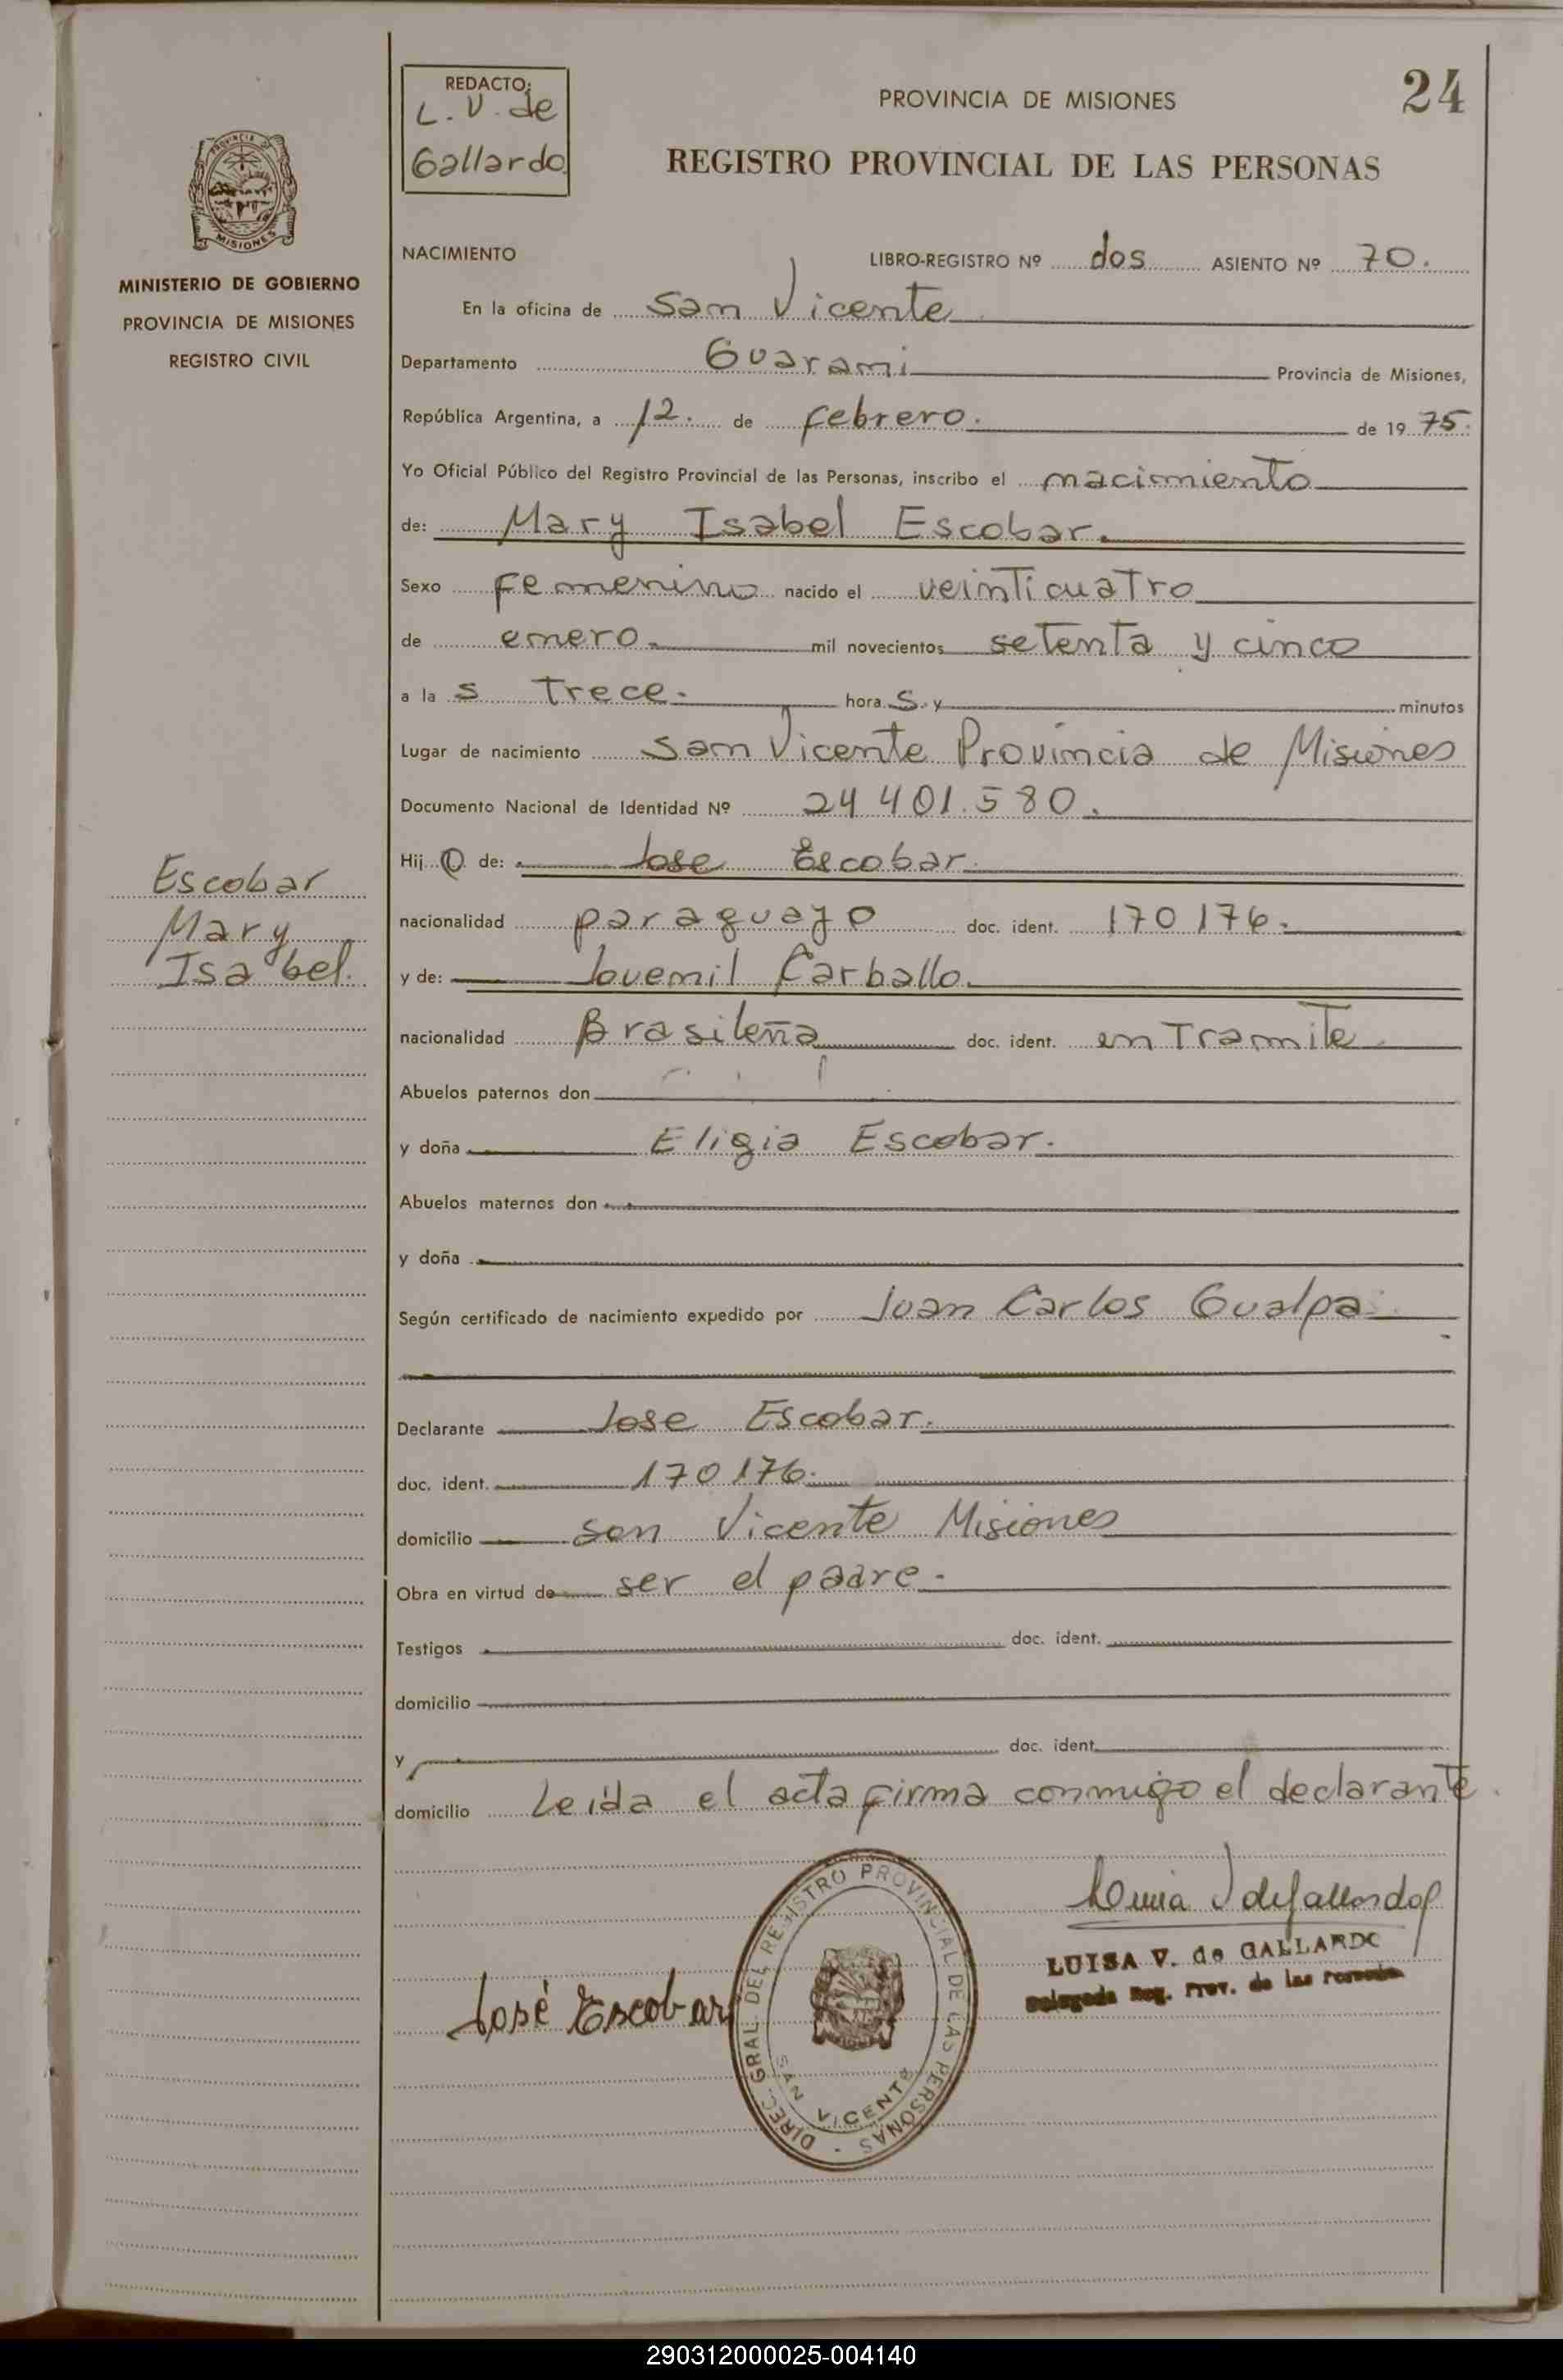 REDACTO:
L. V. de
Gallardo
PROVINCIA DE MISIONES
24
REGISTRO PROVINCIAL DE LAS PERSONAS
PROVINCIA
MISIONES
MINISTERIO DE GOBIERNO
PROVINCIA DE MISIONES
REGISTRO CIVIL
NACIMIENTO LIBRO-REGISTRO Nº dos ASIENTO Nº 70.
En la oficina de San Vicente
Departamento Guarani Provincia de Misiones,
República Argentina, a 12. de febrero. de 19 75.
Yo Oficial Público del Registro Provincial de las Personas, inscribo el nacimiento
de: Mary Isabel Escobar.
Sexo femenino nacido el veinticuatro
de enero. mil novecientos setenta y cinco
a la s trece. hora s. y minutos
Lugar de nacimiento San Vicente Provincia de Misiones
Documento Nacional de Identidad Nº 24.401.580.
Hij a de: Jose Escobar.
Escobar
Mary
Isabel.
nacionalidad paraguayo doc. ident. 170176.
y de: Jovenil Carballo.
nacionalidad Brasileña doc. ident. en Tramite
Abuelos paternos don
y doña Eligia Escobar.
Abuelos maternos don
y doña
Según certificado de nacimiento expedido por Juan Carlos Gualpa
Declarante Jose Escobar.
doc. ident. 170176.
domicilio San Vicente Misiones
Obra en virtud de ser el padre.
Testigos doc. ident.
domicilio
y doc. ident.
domicilio Leida el acta firma conmigo el declarante.
LUISA V. de GALLARDO
Delegada Reg. Prov. de las Personas
José Escobar
DIREC. GRAL. DEL REGISTRO PROVINCIAL DE LAS PERSONAS -
SAN VICENTE
290312000025-004140